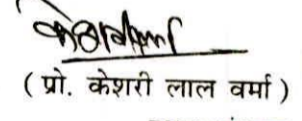 ( प्रो. केशरी लाल वर्मा )